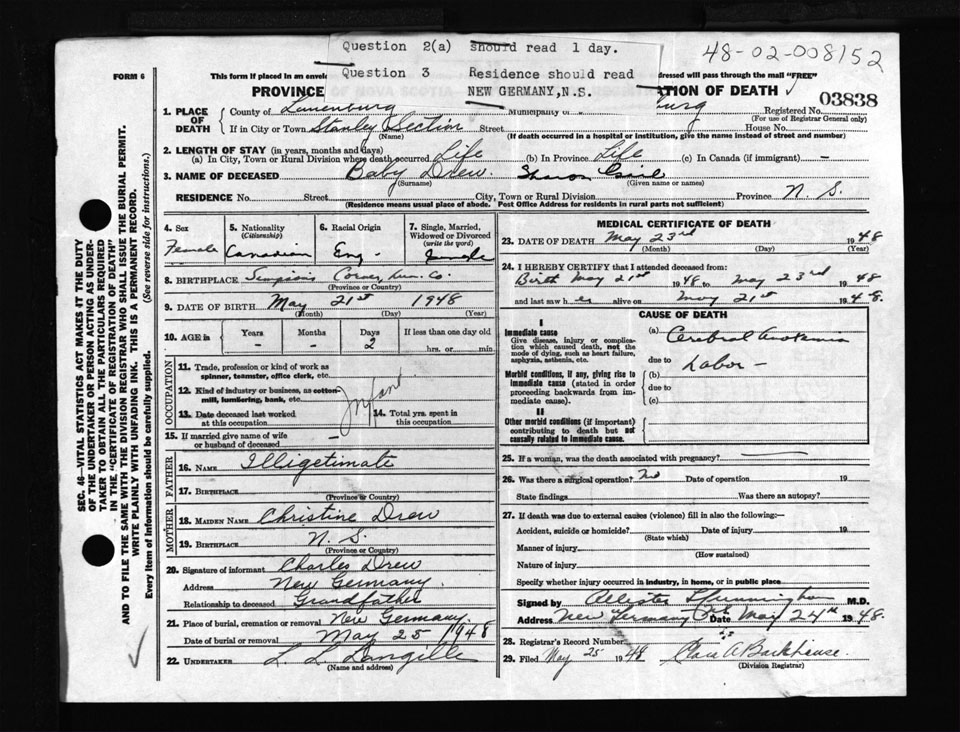 Question 2(a) should read 1 day.
Question 3 Residence should read
NEW GERMANY, N.S.
48-02-008152
FORM 6
This form if placed in an envelo
dressed will pass through the mail "FREE"
PROVINCE
ATION OF DEATH
03838
1. PLACE OF DEATH
County of Lunenburg
Municipality of
Registered No.
(For use of Registrar General only)
If in City or Town Stanley Section Street House No.
(Name) (If death occurred in a hospital or institution, give the name instead of street and number)
2. LENGTH OF STAY (in years, months and days)
(a) In City, Town or Rural Division where death occurred Life (b) In Province Life (c) In Canada (if immigrant) –
3. NAME OF DECEASED Baby Drew. Sharon Girl
(Surname) (Given name or names)
RESIDENCE No. Street City, Town or Rural Division Province N. S.
(Residence means usual place of abode. Post Office Address for residents in rural parts not sufficient)
4. Sex
Female
5. Nationality (Citizenship)
Canadian
6. Racial Origin
Eng -
7. Single, Married, Widowed or Divorced (write the word)
Single
8. BIRTHPLACE Simpson's Corner, Lun. Co.
(Province or Country)
9. DATE OF BIRTH May 21st 1948
(Month) (Day) (Year)
10. AGE in Years Months Days If less than one day old
– – 2 hrs. or min.
OCCUPATION
11. Trade, profession or kind of work as spinner, teamster, office clerk, etc.
12. Kind of industry or business, as cotton-mill, lumbering, bank, etc.
Infant
13. Date deceased last worked at this occupation
14. Total yrs. spent in this occupation
15. If married give name of wife or husband of deceased –
FATHER
16. NAME Illigetimate
17. BIRTHPLACE
(Province or Country)
MOTHER
18. MAIDEN NAME Christine Drew
19. BIRTHPLACE N. S.
(Province or Country)
20. Signature of informant Charles Drew
Address New Germany.
Relationship to deceased Grandfather
21. Place of burial, cremation or removal New Germany.
Date of burial or removal May 25 1948
22. UNDERTAKER L. L. Langille
(Name and address)
MEDICAL CERTIFICATE OF DEATH
23. DATE OF DEATH May 23rd 1948
(Month) (Day) (Year)
24. I HEREBY CERTIFY that I attended deceased from:
Birth May 21st 1948 to May 23rd 1948
and last saw her alive on May 21st 1948.
CAUSE OF DEATH
I
Immediate cause
Give disease, injury or complication which caused death, not the mode of dying, such as heart failure, asphyxia, asthenia, etc.
(a) Cerebral
due to
Labor –
Morbid conditions, if any, giving rise to immediate cause (stated in order proceeding backwards from immediate cause).
(b)
due to
(c)
II
Other morbid conditions (if important) contributing to death but not causally related to immediate cause.
25. If a woman, was the death associated with pregnancy? –
26. Was there a surgical operation? No Date of operation 19
State findings Was there an autopsy?
27. If death was due to external causes (violence) fill in also the following:—
Accident, suicide or homicide? Date of injury 19
(State which)
Manner of injury
(How sustained)
Nature of injury
Specify whether injury occurred in industry, in home, or in public place
Signed by M.D.
Address New Germany Date May 24th 1948
28. Registrar's Record Number
29. Filed May 25 1948 Clara A Barkhouse.
(Division Registrar)
SEC. 46—VITAL STATISTICS ACT MAKES IT THE DUTY
OF THE UNDERTAKER OR PERSON ACTING AS UNDER-
TAKER TO OBTAIN ALL THE PARTICULARS REQUIRED
IN THE "CERTIFICATE OF REGISTRATION OF DEATH"
AND TO FILE THE SAME WITH THE DIVISION REGISTRAR WHO SHALL ISSUE THE BURIAL PERMIT.
WRITE PLAINLY WITH UNFADING INK. THIS IS A PERMANENT RECORD.
Every item of information should be carefully supplied. (See reverse side for instructions.)